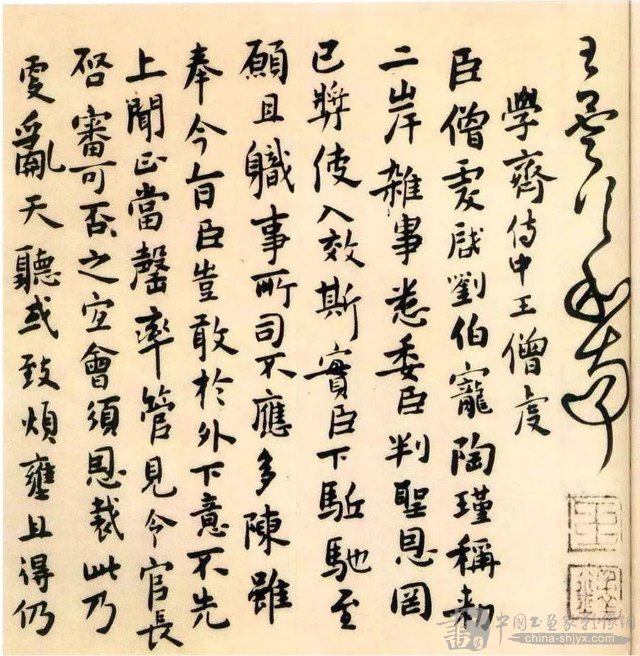 學齊侍中王僧虔
臣僧虔啟劉伯寵陶瑾稱勅
二岸雜事悉委臣判聖恩罔
已獎使入效斯實臣下駈馳至
願且職事所司不應多陳雖
奉今旨臣豈敢於外下意不先
上聞正當罄率管見令官長
啓審可否之宜會須恩裁此乃
更亂天聽或致煩壅且得仍
china-shjyx.com